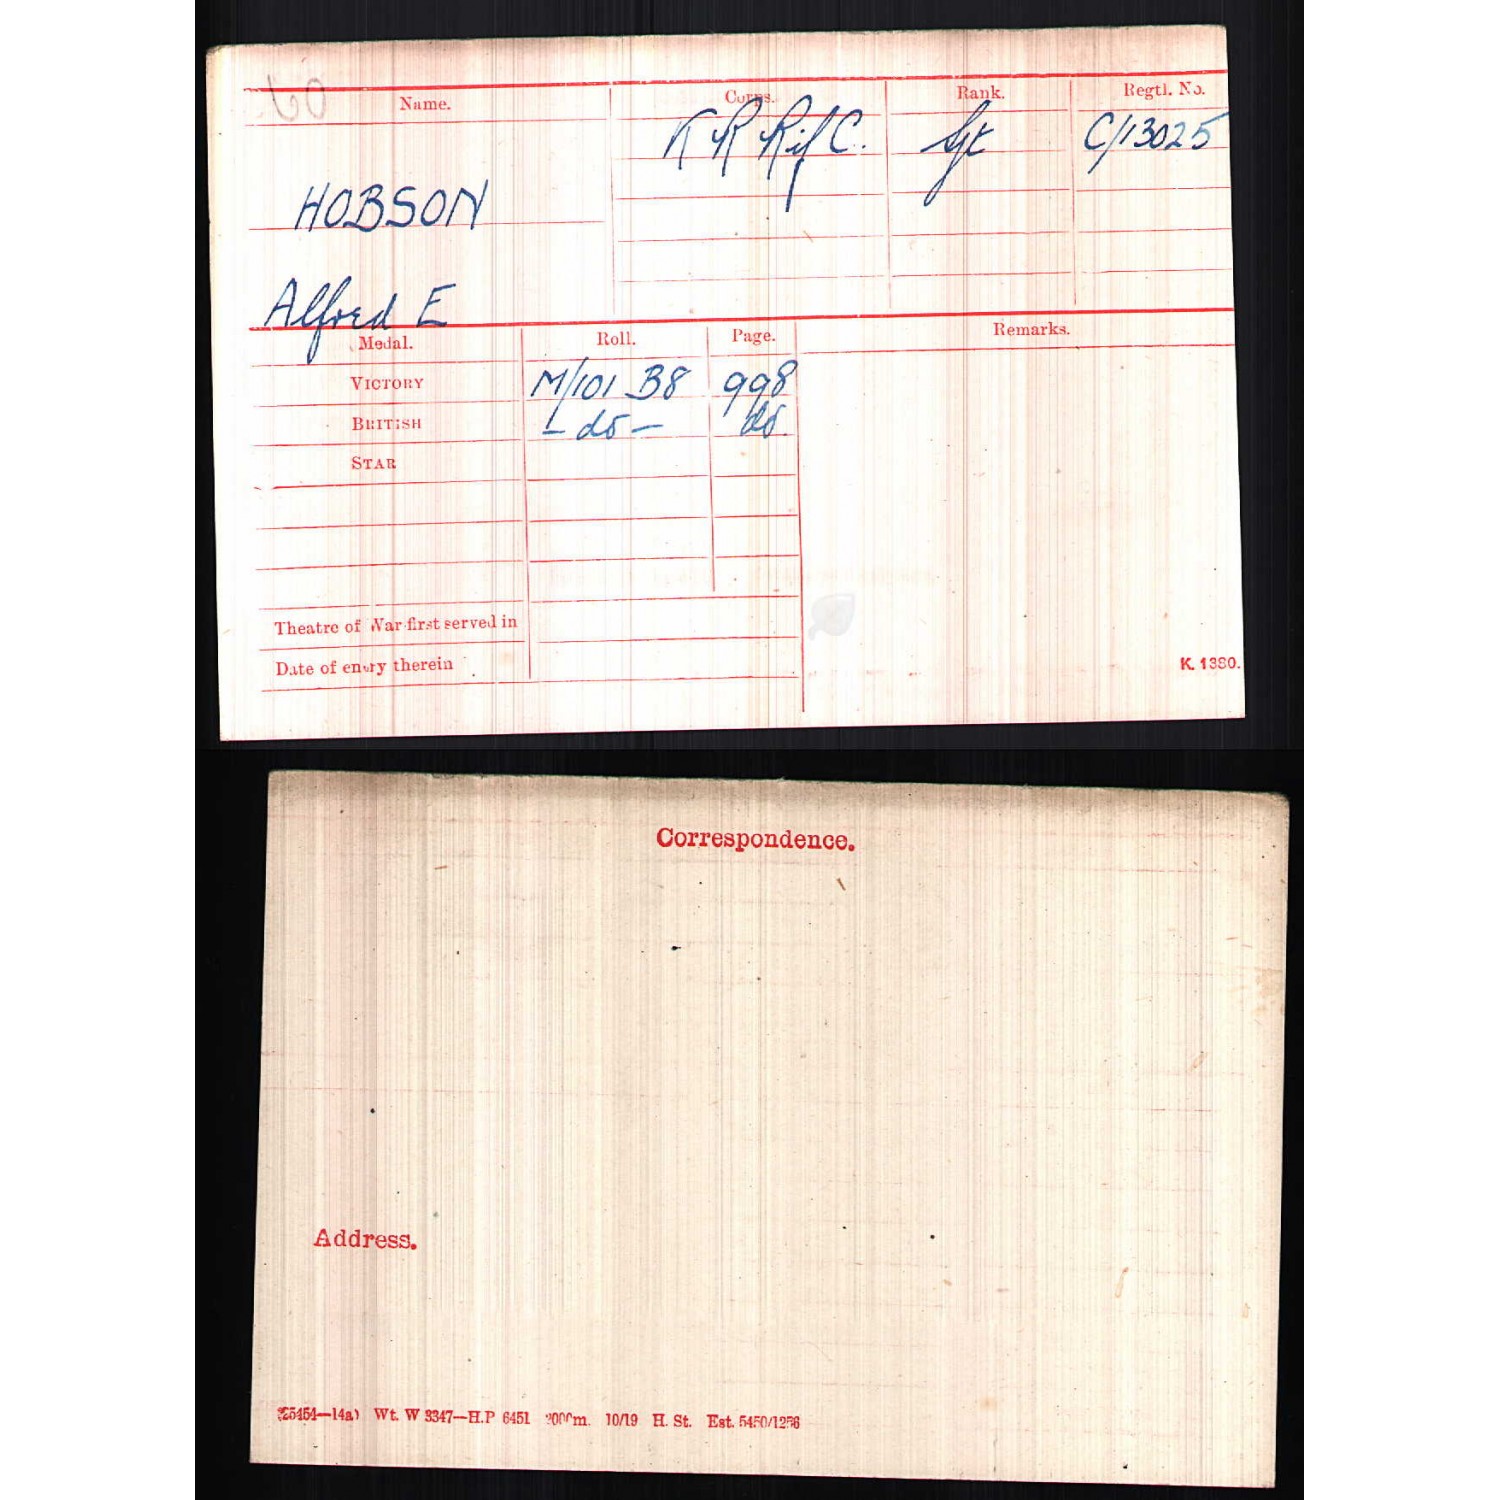 60
Name. Corps. Rank. Regtl. No.
K R Rif C. Sjt C/13025
HOBSON
Alfred E
Medal. Roll. Page. Remarks.
VICTORY M/101 B8 998
BRITISH - do - do
STAR
Theatre of War first served in
Date of entry therein
K. 1380.
Correspondence.
Address.
(25454—14a) Wt. W 3347—H.P 6451 10/19 H. St. Est.